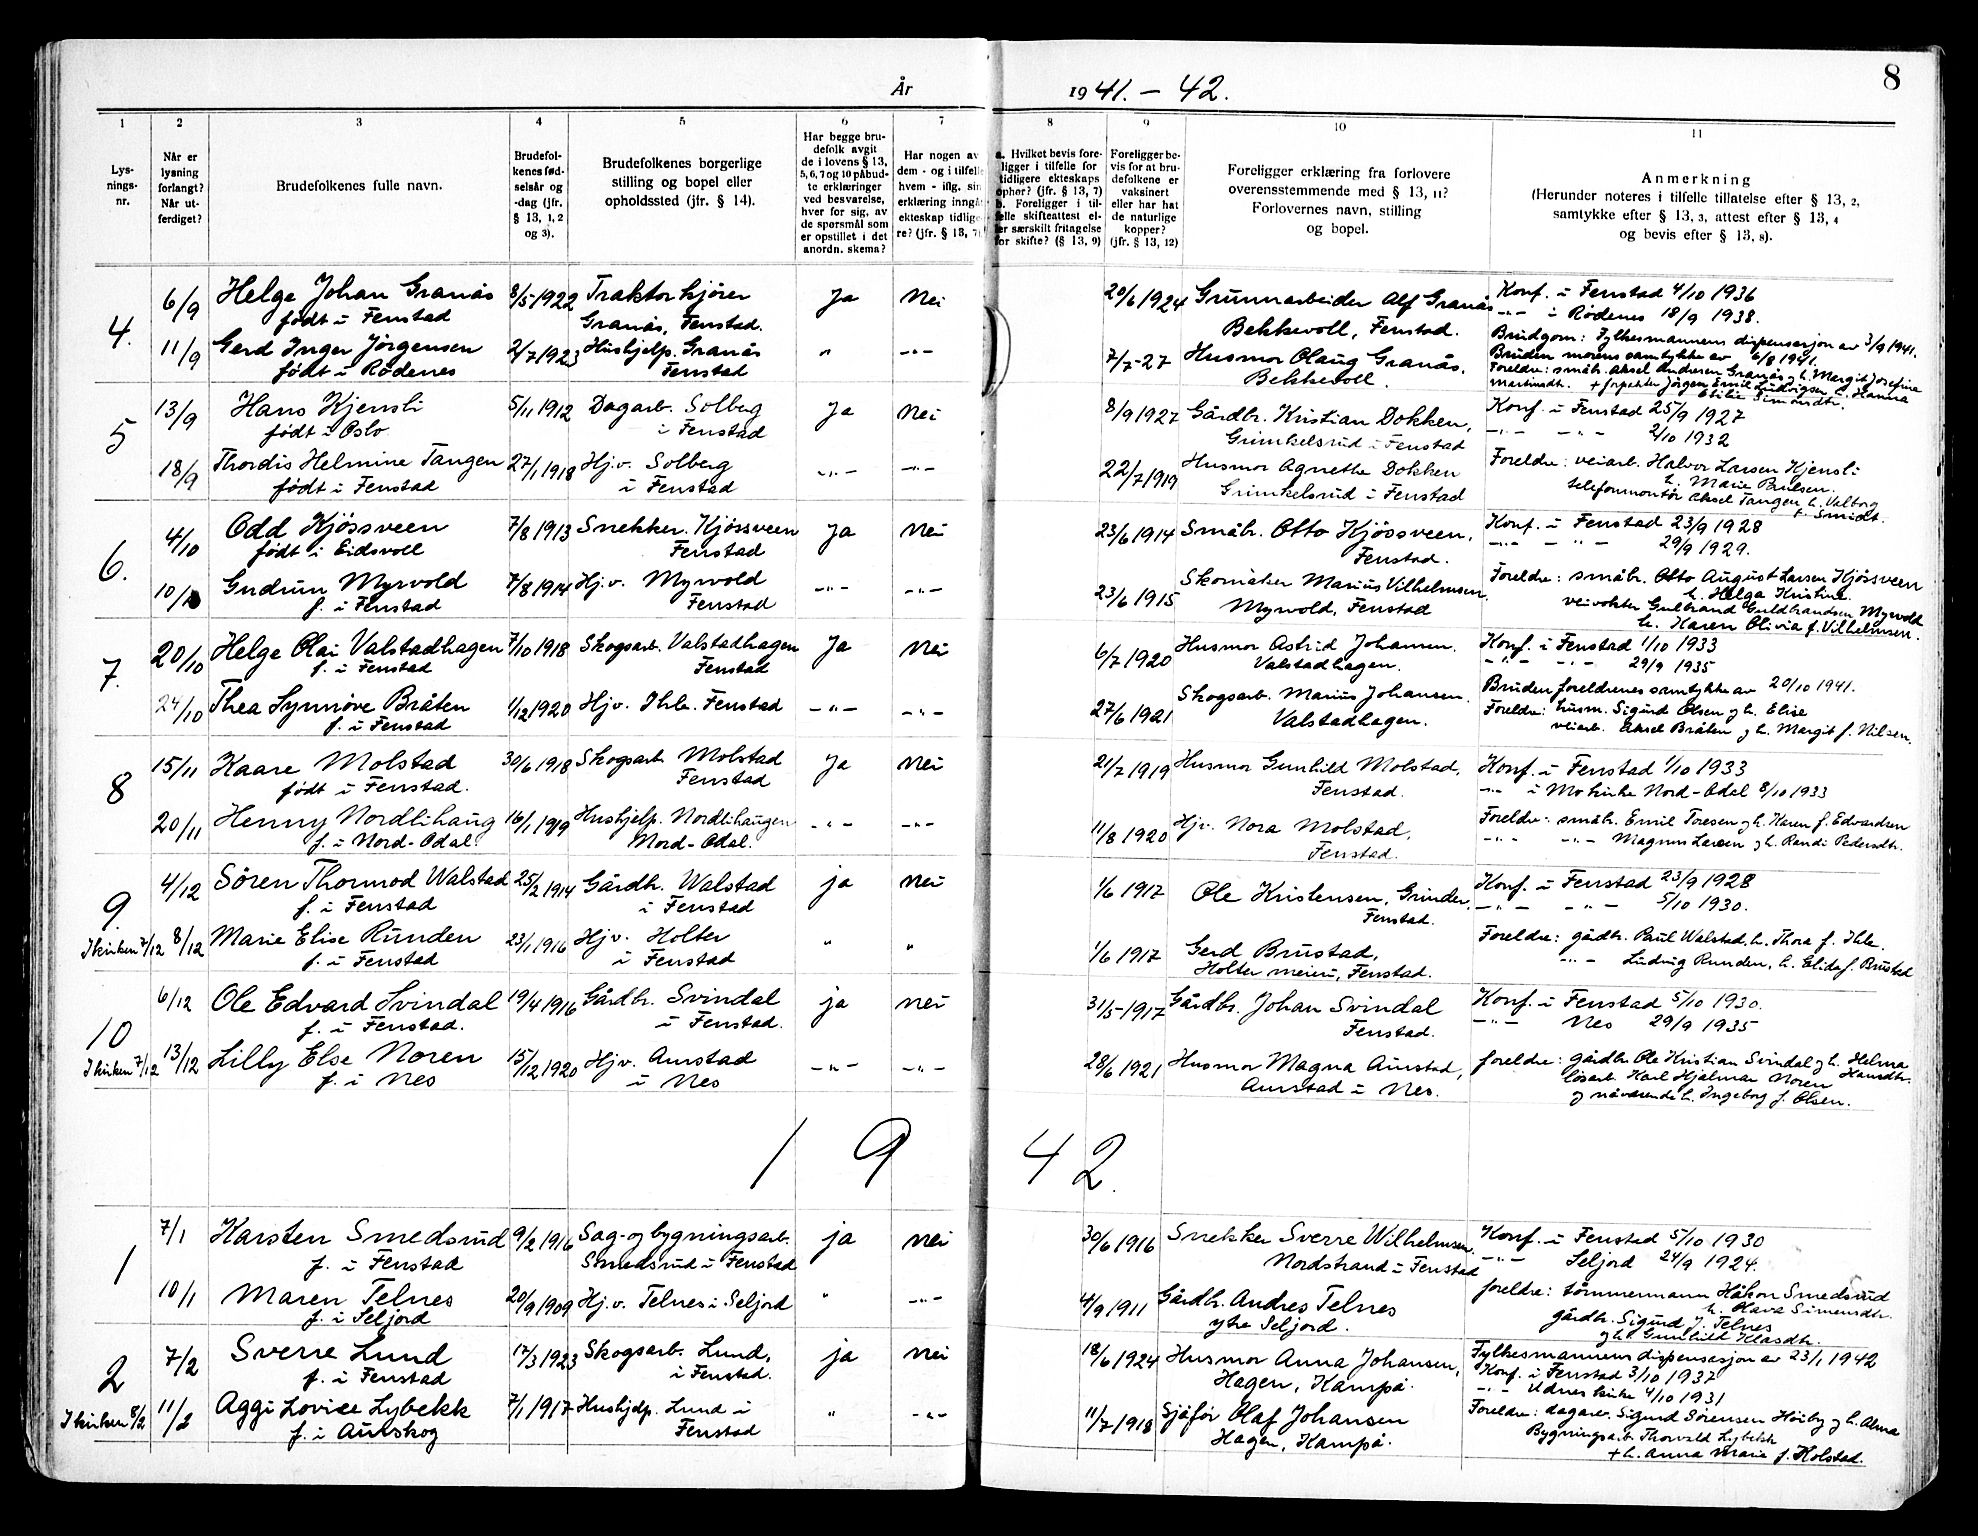 8
År 1941. – 42.
1 2 3 4 5 6 7 8 9 10 11
Lys-
nings-
nr.
Når er
lysning
forlangt?
Når ut-
ferdiget?
Brudefolkenes fulle navn.
Brudefol-
kenes fød-
selsår og
-dag (jfr.
§ 13, 1, 2
og 3).
Brudefolkenes borgerlige
stilling og bopel eller
opholdssted (jfr. § 14).
Har begge bru-
defolk avgit
de i lovens § 13,
5, 6, 7 og 10 påbud-
te erklæringer
ved besvarelse,
hver for sig, av
de spørsmål som
er opstillet i det
anordn. skema?
Har nogen av
dem - og i tilfelle
hvem - iflg. sin
erklæring inngåt
ekteskap tidlige-
re? (jfr. § 13, 7)
a. Hvilket bevis fore-
ligger i tilfelle for
tidligere ekteskaps
ophør? (jfr. § 13, 7)
b. Foreligger i til-
felle skifteattest el-
ler særskilt fritagelse
for skifte? (§ 13, 9)
Foreligger be-
vis for at bru-
defolkene er
vaksinert
eller har hat
de naturlige
kopper?
(jfr. § 13, 12)
Foreligger erklæring fra forlovere
overensstemmende med § 13, 11?
Forlovernes navn, stilling
og bopel.
Anmerkning
(Herunder noteres i tilfelle tillatelse efter § 13, 2,
samtykke efter § 13, 3, attest efter § 13, 4
og bevis efter § 13, 8).
4. 6/9 Helge Johan Granås 8/5 1922 Traktorkjører Ja Nei 20/6 1924 Grunnarbeider Alf Granås Konf. i Fenstad 4/10 1936
født i Fenstad Granås, Fenstad. Bekkevoll, Fenstad. -"- i Rødenes 18/9 1938.
11/9 Gerd Inger Jörgensen 2/7 1923 Hushjelp. Granås " -"- 7/7-27 Husmor Olaug Granås, Brudgom: Fylkesmannens dispensasjon av 3/9 1941.
født i Rødenes Fenstad Bekkevoll. Bruden morens samtykke av 6/8 1941.
Foreldre: småbr. Aksel Andersen Granås og h. Margit Josefine
Martinsdt. + Jörgen Emil Ludvigsen h. Hanna
Emilie Simonsdt.
5 13/9 Hans Kjensli 5/11 1912 Dagarb. Solberg Ja Nei 8/9 1927 Gårdbr. Kristian Dokken, Konf. i Fenstad 25/9 1927
født i Oslo i Fenstad Grimkelsrud i Fenstad -"- -"- 2/10 1932
18/9 Thordis Helmine Tangen 27/1 1918 Hj.v. Solberg -"- -"- 22/7 1919 Husmor Agnethe Dokken Foreldre: veiarb. Halvor Larsen Kjensli
født i Fenstad i Fenstad Grimkelsrud i Fenstad h. Marie Paulsen.
telefonmontör Aksel Tangen h. Valborg
f. Smidt.
6. 4/10 Odd Kjössveen 7/8 1913 Snekker. Kjössveen Ja Nei 23/6 1914 Småbr. Otto Kjössveen, Konf. i Fenstad 23/9 1928
født i Eidsvoll Fenstad Fenstad. -"- -"- 29/9 1929.
10/10 Gudrun Myrvold 7/8 1914 Hj.v. Myrvold -"- -"- 23/6 1915 Skomaker Marius Vilhelmsen, Foreldre: småbr. Otto August Larsen Kjössveen
f. i Fenstad Fenstad Myrvold, Fenstad h. Helga Kristine.
veivokter Gulbrand Guldbrandsen Myrvold
h. Karen Olivia f. Vilhelmsen.
7. 20/10 Helge Olai Valstadhagen 7/10 1918 Skogsarb. Valstadhagen Ja Nei 6/7 1920 Husmor Astrid Johansen. Konf. i Fenstad 1/10 1933
f. i Fenstad Fenstad Valstadhagen. -"- -"- 29/9 1935
24/10 Thea Synnöve Bråten 1/12 1920 Hj.v. Ihle. Fenstad -"- -"- 27/6 1921 Skogsarb. Marius Johansen. Bruden foreldrenes samtykke av 20/10 1941.
f. i Fenstad Valstadhagen. Foreldre: husm. Sigurd Olsen og h. Elise
veiarb. Aksel Bråten og h. Margit f. Nilsen.
8 15/11 Kaare Molstad 30/6 1918 Skogsarb. Molstad Ja Nei 21/7 1919 Husmor Gunhild Molstad, Konf. i Fenstad 1/10 1933
født i Fenstad. Fenstad Fenstad. -"- i Mo kirke Nord-Odal 8/10 1933
20/11 Henny Nordlihaug 16/1 1919 Hushjelp. Nordlihaugen -"- -"- 11/8 1920 Hjv. Nora Molstad, Foreldre: småbr. Emil Toresen og h. Karen f. Edvardsen
f. i Nord-Odal. Nord-Odal. Fenstad. -"- -"- Magnus Larsen og h. Randi Pedersdtr.
9. 4/12 Sören Thormod Walstad 25/2 1914 Gårdbr. Walstad ja nei 1/6 1917 Ole Kristensen, Grinder, Konf. i Fenstad 23/9 1928
f. i Fenstad i Fenstad Fenstad. -"- -"- 5/10 1930.
I kirken 7/12 8/12 Marie Elise Runden 23/1 1916 Hjv. Holter " " 1/6 1917 Gerd Brustad, Foreldre: gårdbr. Paul Walstad, h. Thora f. Ihle.
f. i Fenstad i Fenstad Holter meieri, Fenstad. -"- Ludvig Runden, h. Elida f. Brustad
10 6/12 Ole Edvard Svindal 19/4 1916 Gårdbr. Svindal ja nei 31/5-1917 Gårdbr. Johan Svindal Konf. i Fenstad 5/10 1930.
f. i Fenstad. i Fenstad. Fenstad. -"- Nes 29/9 1935
I kirken 7/12 13/12 Lilly Else Noren 15/12 1920 Hjv. Aurstad -"- -"- 28/6 1921 Husmor Magna Aurstad, foreldre: gårdbr. Ole Kristian Svindal og h. Helma
f. i Nes i Nes Aurstad i Nes. Hansdtr.
løsarb. Karl Hjalmar Noren
og nåværende h. Ingeborg f. Olsen.
1 9 4 2.
1 7/1 Karsten Smedsrud 9/2 1916 Sag- og bygningsarb. ja nei 30/6 1916 Snekker Sverre Wilhelmsen. Konf. i Fenstad 5/10 1930
f. i Fenstad Smedsrud i Fenstad Nordstrand i Fenstad -"- Seljord 24/9 1924.
10/1 Maren Telnes 20/9 1909 Hj.v. Telnes i Seljord " -"- 4/9 1911 Gårdbr. Andres Telnes foreldre: tömmermann Håkon Smedsrud
f. i Seljord ytre Seljord. h. Hava Simensdtr.
gårdbr. Sigurd J. Telnes
og h. Gunhild Klasdtr.
2 7/2 Sverre Lund 17/3 1923 Skogsarb. Lund, ja nei 18/6 1924 Husmor Anna Johansen, Fylkesmannens dispensasjon av 23/1 1942
f. i Fenstad i Fenstad. Hagen, Kampå. Konf. i Fenstad 3/10 1937
-"- Udnes kirke 4/10 1931
I kirken 8/2 11/2 Aggi Lovise Lybekk 7/1 1917 Hushjelp. Lund i " -"- 11/7 1918 Sjåför Olaf Johansen Foreldre: dagarb. Sigurd Sörensen Höiby og h. Alma
f. i Aurskog Fenstad Hagen, Kampå. Bygningsarb. Thorvald Lybekk
+ h. Anna Marie f. Kolstad.